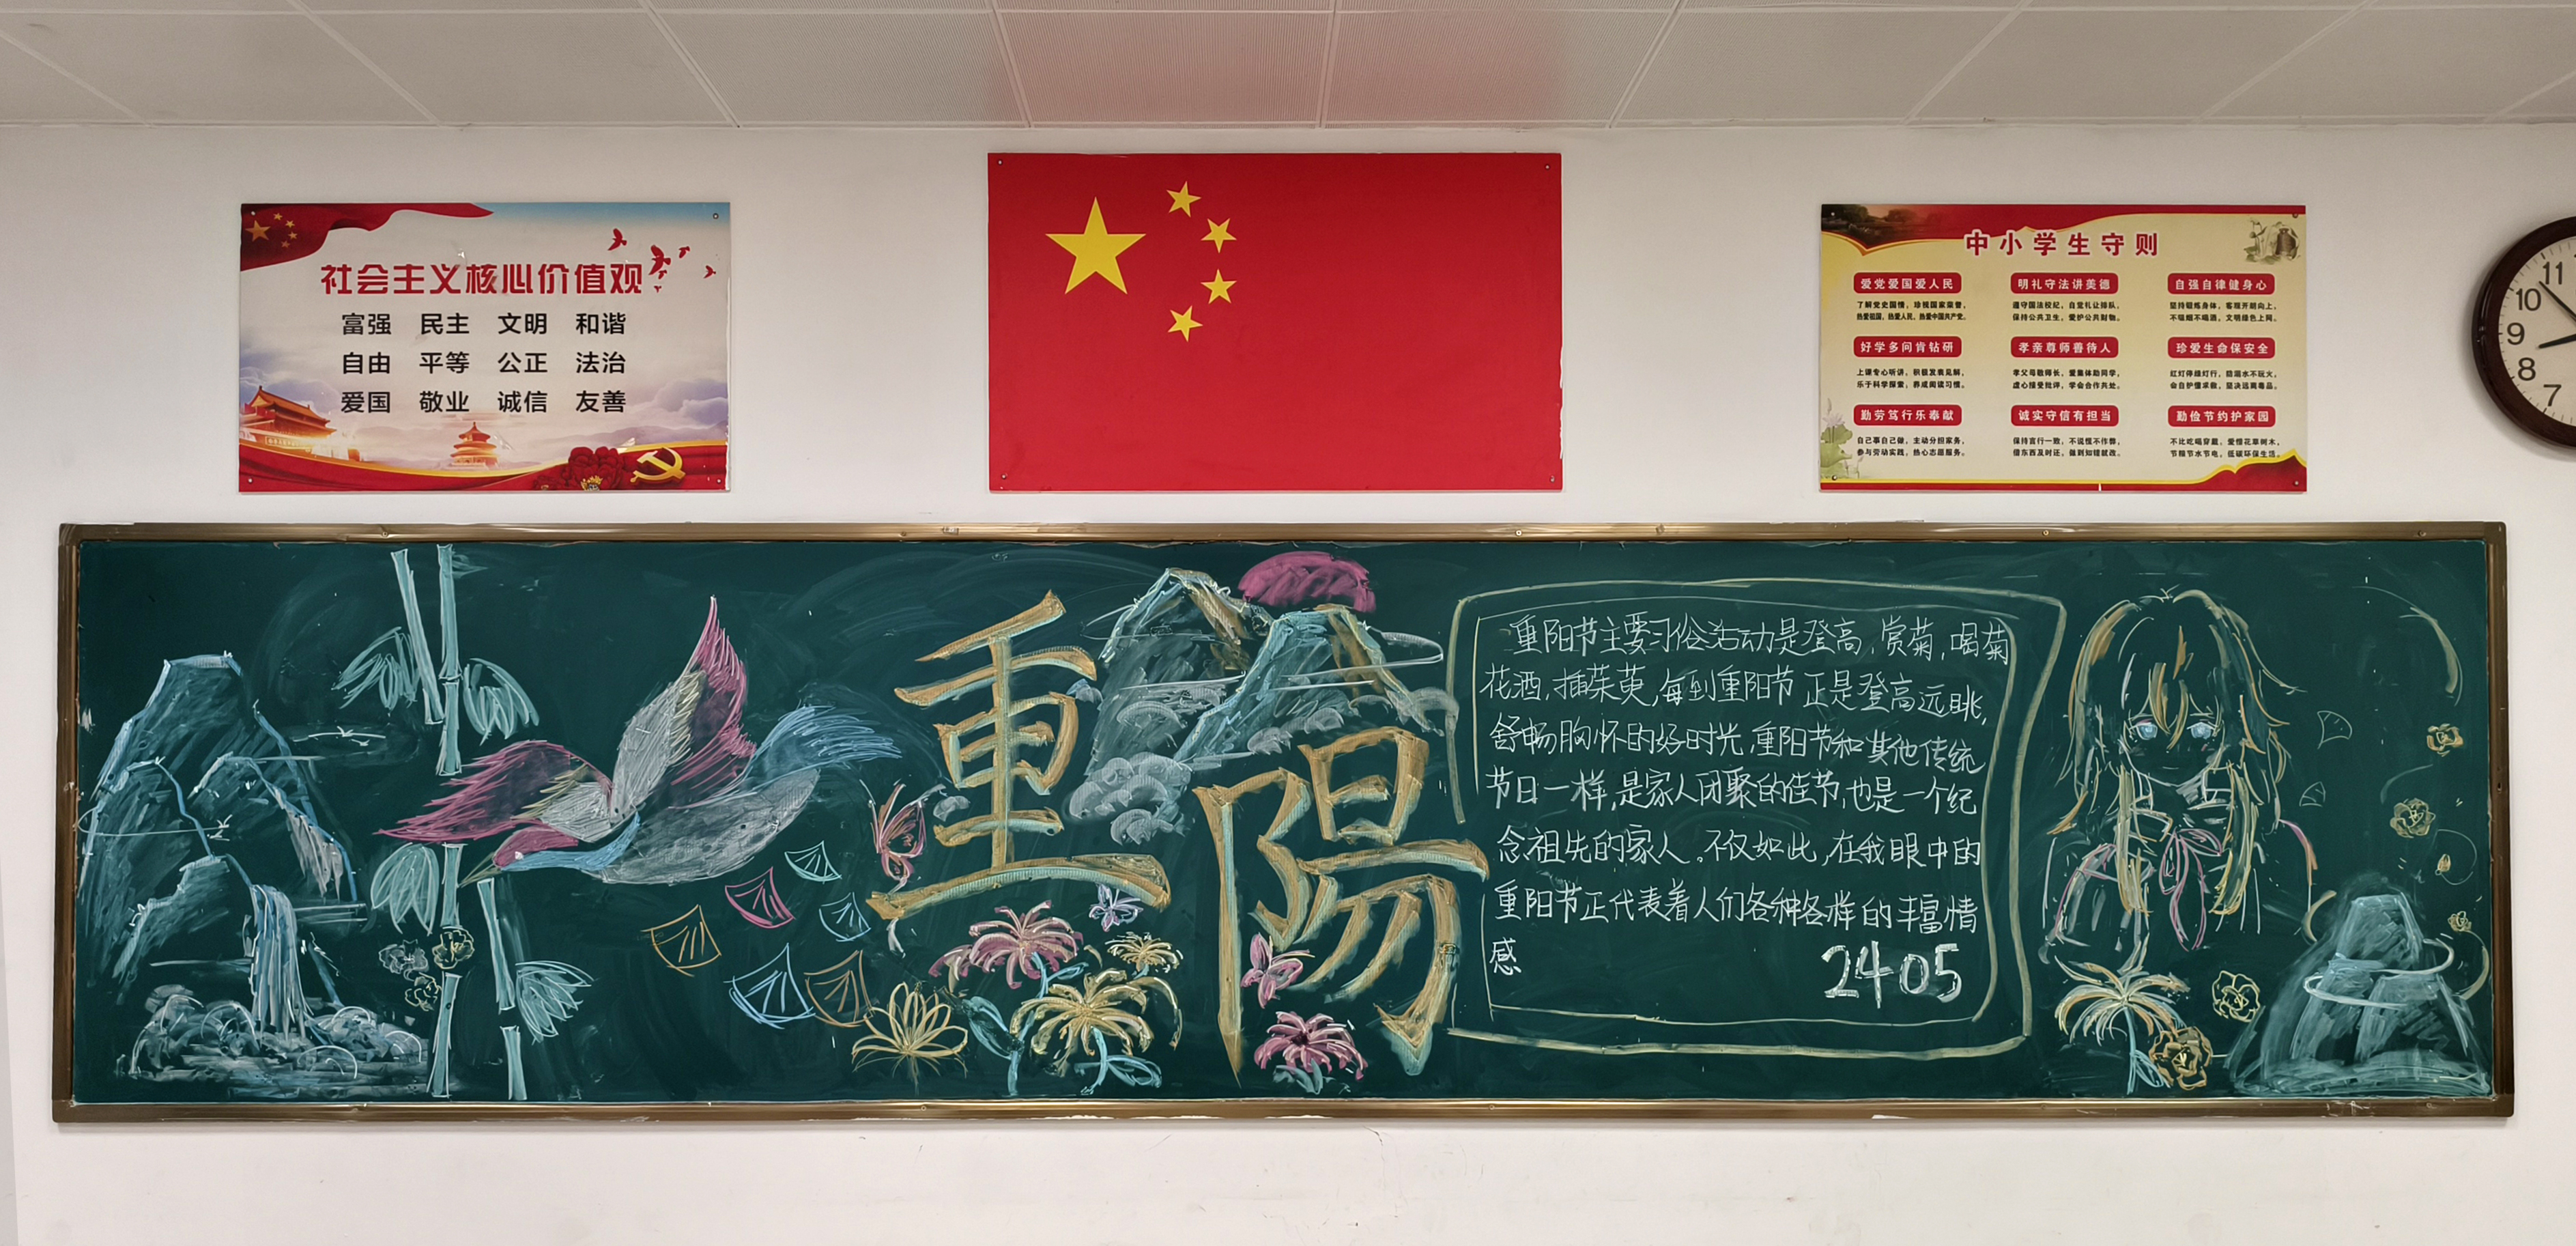 社会主义核心价值观
富强 民主 文明 和谐
自由 平等 公正 法治
爱国 敬业 诚信 友善
中小学生守则
爱党爱国爱人民
了解党史国情，珍视国家荣誉，
热爱祖国，热爱人民，热爱中国共产党。
明礼守法讲美德
遵守国法校纪，自觉礼让排队，
保持公共卫生，爱护公共财物。
自强自律健身心
坚持锻炼身体，乐观开朗向上，
不吸烟不喝酒，文明绿色上网。
好学多问肯钻研
上课专心听讲，积极发表见解，
乐于科学探索，养成阅读习惯。
孝亲尊师善待人
孝父母敬师长，爱集体助同学，
虚心接受批评，学会合作共处。
珍爱生命保安全
红灯停绿灯行，防溺水不玩火，
会自护懂求救，坚决远离毒品。
勤劳笃行乐奉献
自己事自己做，主动分担家务，
参与劳动实践，热心志愿服务。
诚实守信有担当
保持言行一致，不说谎不作弊，
借东西及时还，做到知错就改。
勤俭节约护家园
不比吃喝穿戴，爱惜花草树木，
节粮节水节电，低碳环保生活。
11
10
9
8
7
重陽
重阳节主要习俗活动是登高,赏菊,喝菊
花酒,插茱萸,每到重阳节正是登高远眺,
舒畅胸怀的好时光,重阳节和其他传统
节日一样,是家人团聚的佳节,也是一个纪
念祖先的家人。不仅如此,在我眼中的
重阳节正代表着人们各种各样的丰富情
感
2405